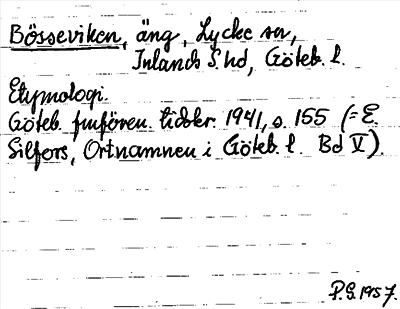 Bösseviken, äng, Lycke sn,
Inlands S. hd, Göteb. l.
Etymologi.
Göteb. fmfören. tidskr. 1941, s. 155 (= E.
Silfors, Ortnamnen i Göteb. l. Bd V).
P.G. 1957.